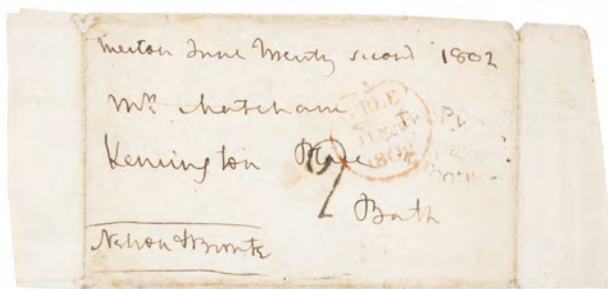 Merton June Twenty second 1802
Mrs Matcham
Kensington Place
Bath
Nelson & Bronte
FREE
1802